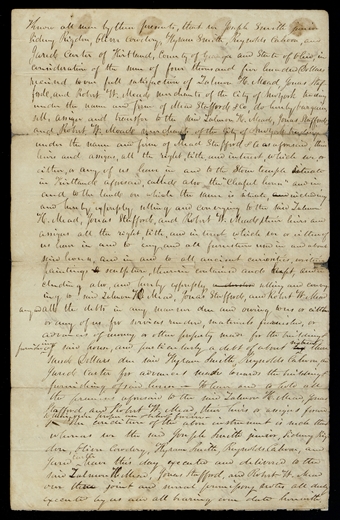 Know all men by these presents, that we Joseph Smith junior
Sidney Rigdon, Oliver Cowdery, Hyrum Smith, Reynolds Cahoon, and
Jared Carter of Kirtland, County of Geauga and State of Ohio, in
consideration of the sum of four thousand five hundred dollars
received to our full satisfaction of Zalmon H. Mead, Jonas Staf
ford, and Robert W. Mead merchants of the City of
under the name and firm of Mead Stafford & Co do hereby bargain,
sell, assign and transfer to the said Zalmon H. Mead, Jonas Stafford,
and Robert W. Mead merchants of the City of
under the name and firm of Mead Stafford & Co as aforesaid, their
heirs and assigns, all the right, title, and interest, which we or
either, or any of us have in and to the stone temple situate
in Kirtland aforesaid, called also the Chapel house and in
and to the land on which the same is situate including
and hereby expressly, selling and conveying to the said Zalmon
H. Mead, Jonas Stafford, and Robert W. Mead their heirs and
assigns all the right, title, and interest which we or either of
us have in and to any, and all furniture now in and about
said house, and in and to all ancient curiosities, writings
paintings & sculpture, therein contained and kept, in
cluding also, and hereby expressly selling and convey
ing to said Zalmon H. Mead, Jonas Stafford, and Robert W. Mead
any and all the debt in any manner due and owing to us or either
or any of us for services rendered, materials furnished, or
advances of money or other property made for the building &
furnishing said house, and particularly a debt of about
thousand dollars due said Hyrum Smith, Reynolds Cahoon, and
Jared Carter for advances made towards the building &
furnishing of said house— To have and to hold all
the premises aforesaid to the said Zalmon H. Mead, Jonas
Stafford, and Robert W. Mead, their heirs & assigns forever,
The condition of the above instrument is such that
whereas we the said Joseph Smith junior, Sidney Rig
don, Oliver Cowdery, Hyrum Smith, Reynolds Cahoon, and
Jared Carter have this day executed and delivered to the
said Zalmon H. Mead, Jonas Stafford, and Robert W. Mead
our three joint and several promissory notes, all duly
executed by us and all bearing even date herewith